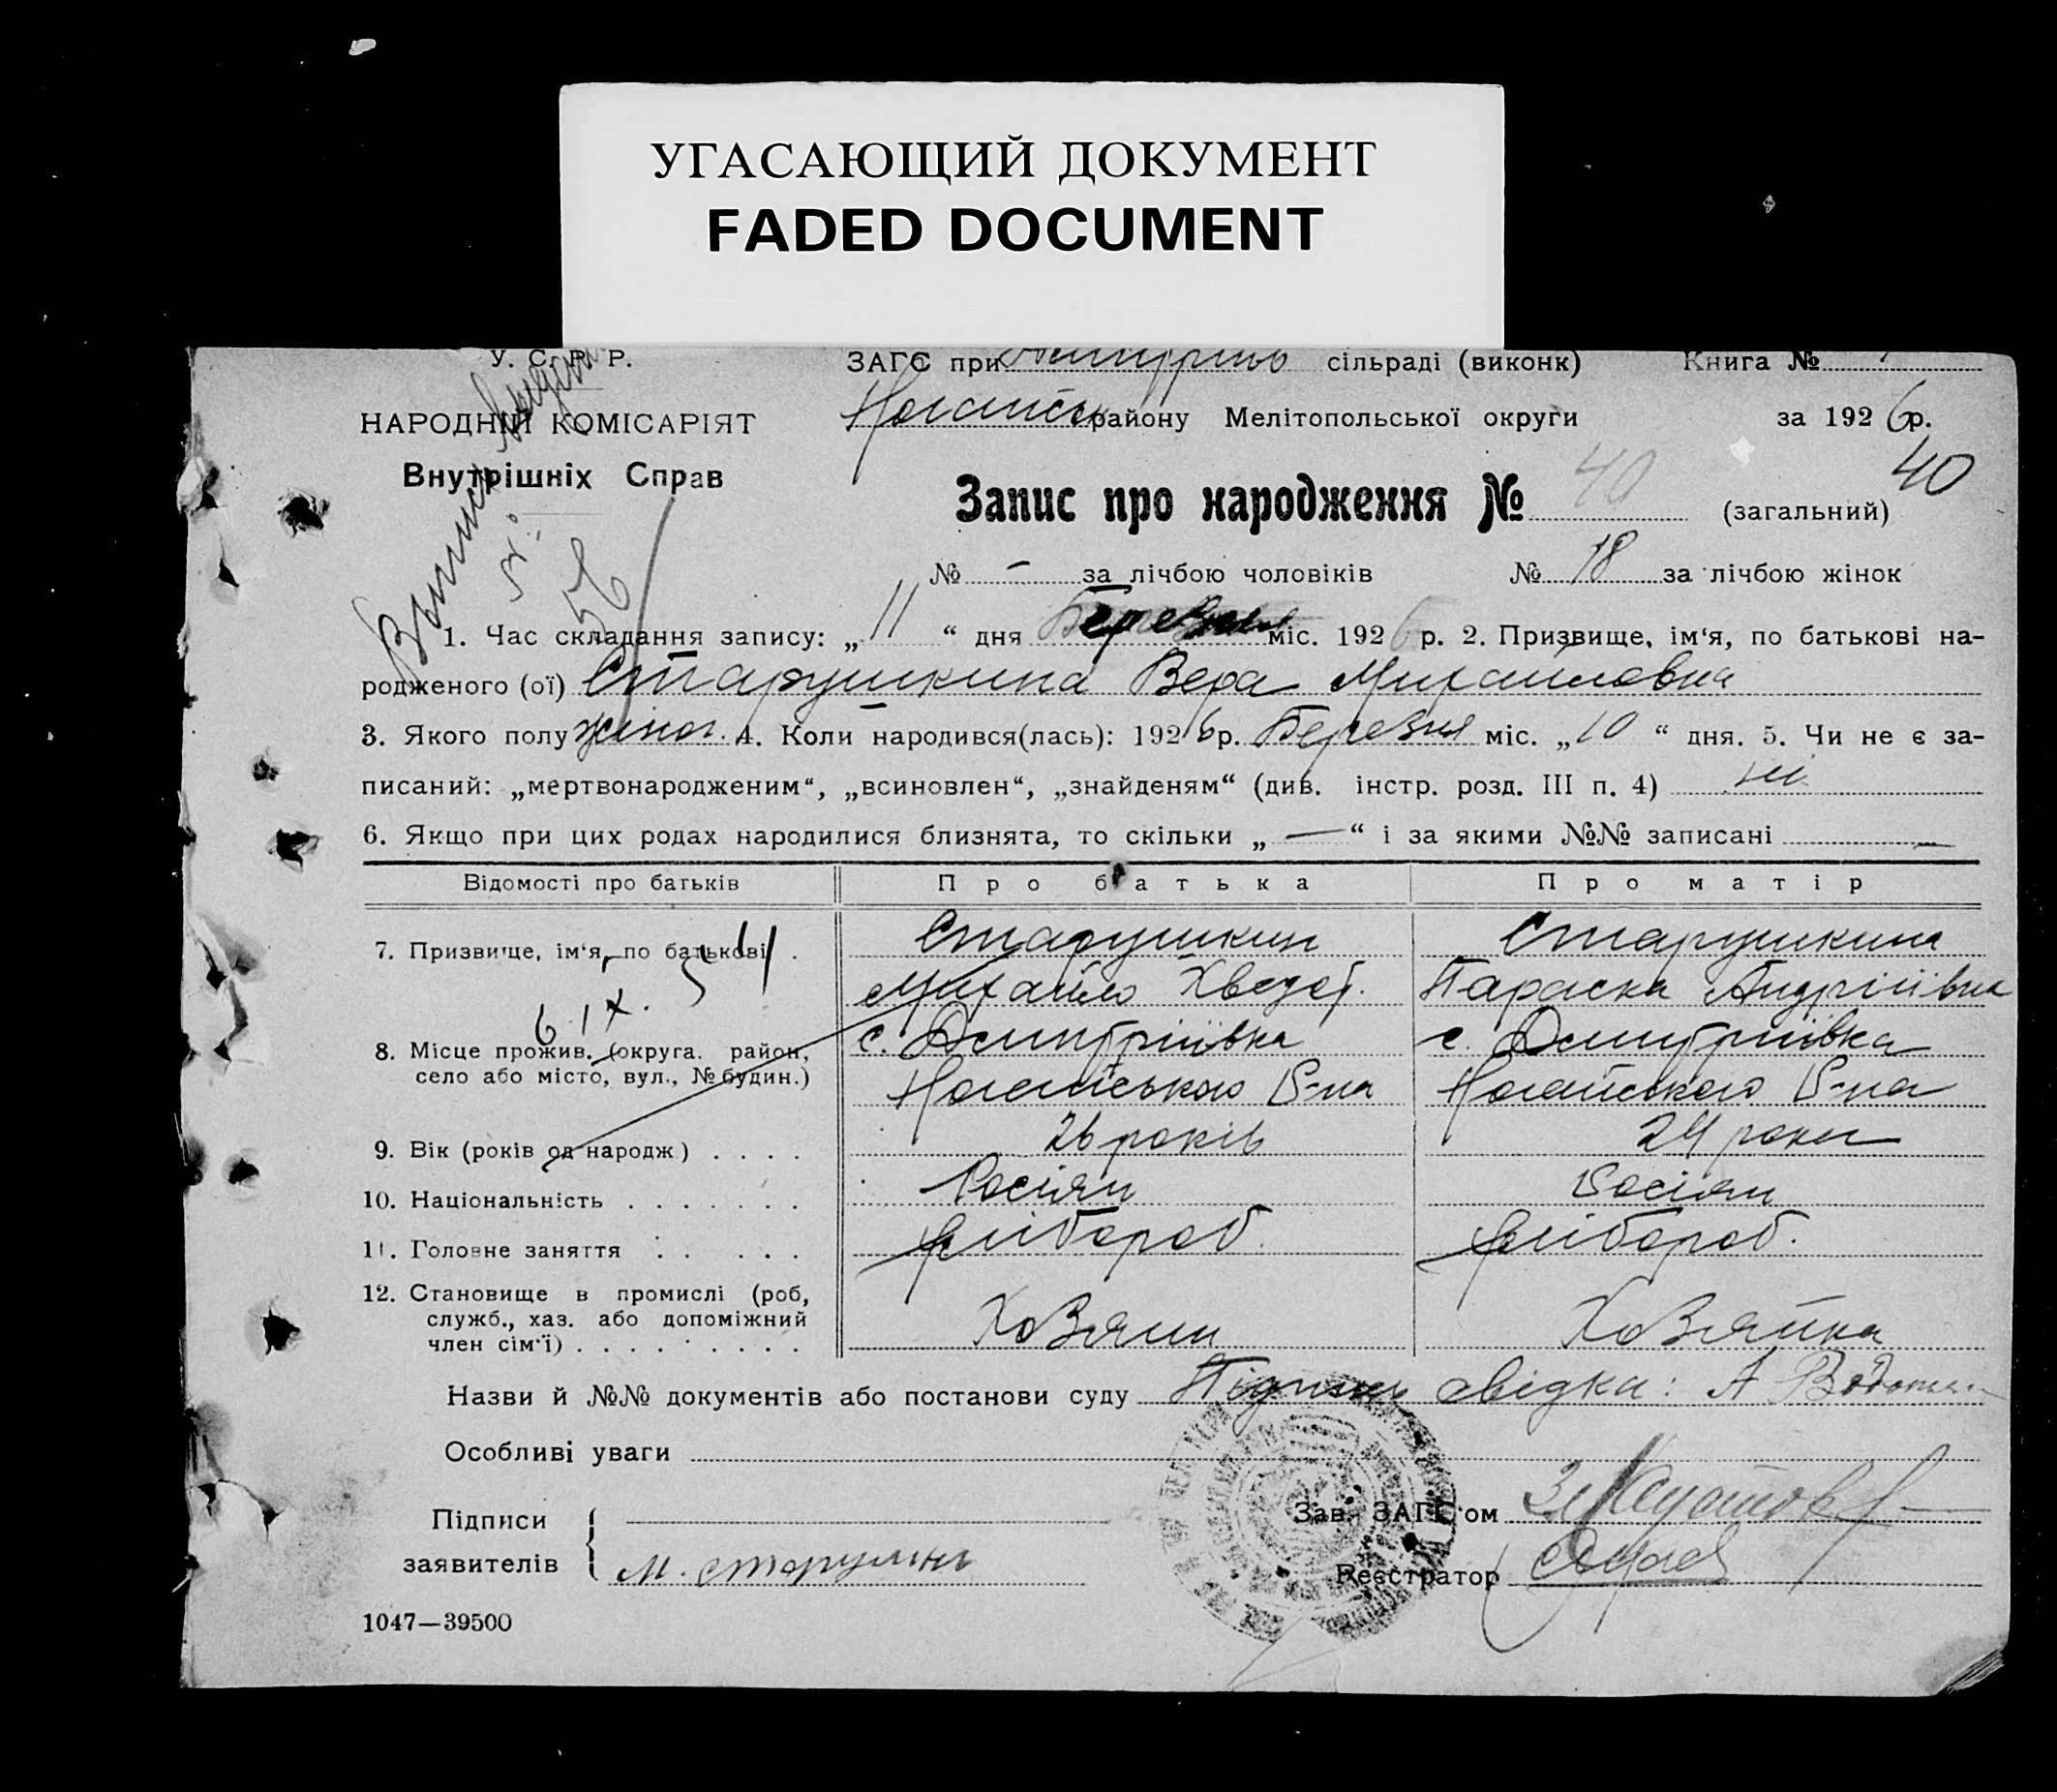 УГАСАЮЩИЙ ДОКУМЕНТ
FADED DOCUMENT
У. С. Р. Р.
ЗАГС при сільраді (виконк) Книга №
НАРОДНІЙ КОМІСАРІЯТ
Внутрішніх Справ
Ногайськ району Мелітопольської округи за 1926 р.
40
Запис про народження № 40 (загальний)
№ - за лічбою чоловіків № 18 за лічбою жінок
1. Час складання запису: „11“ дня Березня міс. 1926 р. 2. Призвище, ім‘я, по батькові на-
родженого (ої) Старушкина Вера Михайловна
3. Якого полу жіноч. 4. Коли народився(лась): 1926 р. Березня міс. „10“ дня. 5. Чи не є за-
писаний: „мертвонародженим“, „всиновлен“, „знайденям“ (див. інстр. розд. III п. 4) ні
6. Якщо при цих родах народилися близнята, то скільки „—“ і за якими №№ записані —
Відомості про батьків Про батька Про матір
7. Призвище, ім‘я, по батькові . Старушкин Старушкина
Михайло Хведот. Параска Андріївна
8. Місце прожив. (округа. район, с. Дмитріївка с. Дмитріївка
село або місто, вул., № будин.) Ногайського Р-на Ногайського Р-на
9. Вік (років од народж.) . . . . 26 років 24 роки
10. Національність . . . . . . . Росіян Росіян
11. Головне заняття . . . . . хлібороб. хлібороб.
12. Становище в промислі (роб,
служб., хаз. або допоміжний
член сім‘ї) . . . . . . . . . Хозяин Хозяйка
Назви й №№ документів або постанови суду Підпись свідка: А
Особливі уваги
Підписи
заявителів
Зав. ЗАГС‘ом
М. Старушкин
Реєстратор
1047—39500